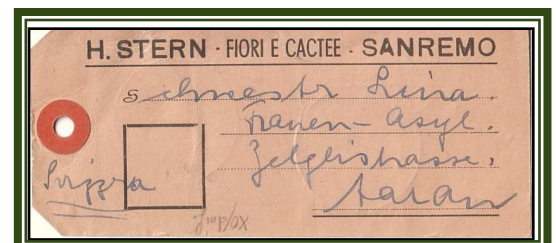 H. STERN · FIORI E CACTEE · SANREMO
Schwester Lina.
Frauen-Asyl.
Zelglistrasse,
Aarau
Svizzera